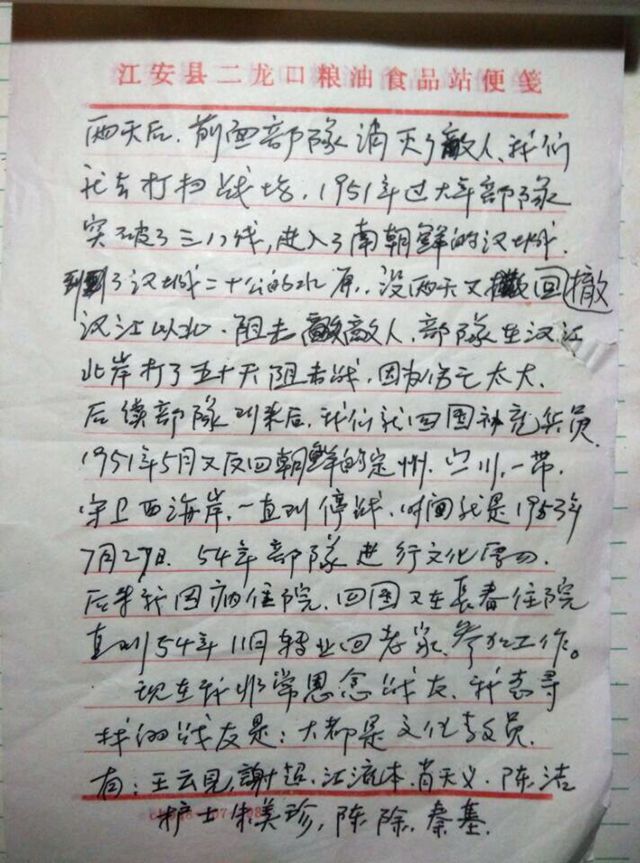 江安县二龙口粮油食品站便笺
两天后.前面部队消灭了敌人、我们
就去打扫战场.1951年过大年部队
突破了三八线,进入了南朝鲜的汉城.
到了汉城二十公的水原.没两天又撤回
汉江以北.阻击敵敵人.部队在汉江
北岸打了五十天阻击战,因为伤亡太大.
后续部队到来后.我们就回国补充兵员.
1951年5月又反回朝鲜的定州.宣川.一带.
守卫西海岸.一直到停战.时间就是1953年
7月27日.54年部队进行文化学习.
后来我因病住院.回国又在長春住院
直到54年11月转业回老家.参加工作。
现在我非常思念战友.我想寻
找的战友是:大都是文化教员.
有:王云見,謝超.江流本.肖天义.陈洁
护士朱美珍,陈除.秦基.